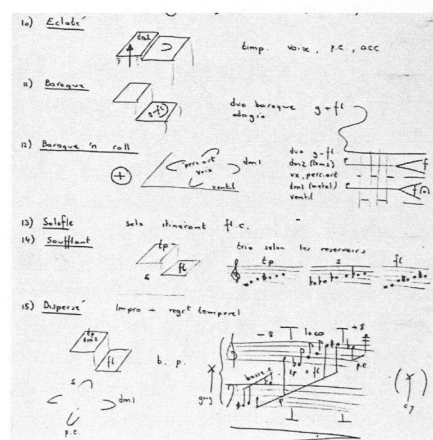 10) Eclaté
tm2
timp. voix, p.c., acc
11) Baroque
g-fl
duo baroque g+fl
adagio
12) Baroque 'n roll
perc. art
voix
dm1
ventil
duo g-fl
dm2
vx, perc. art
dm1 (metal)
ventil
13) Solofle solo itinérant fl.c.
14) Soufflant
tp
s
fl
trio selon les reservoirs
tp s fl
15) Dispersé impro + regrt temporel
tp
fl
b. p.
s
dm1
p.c.
-8 loco +8
basse
tp + fl
p.c